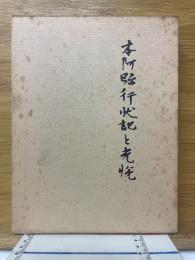 本阿弥行状記と光悦